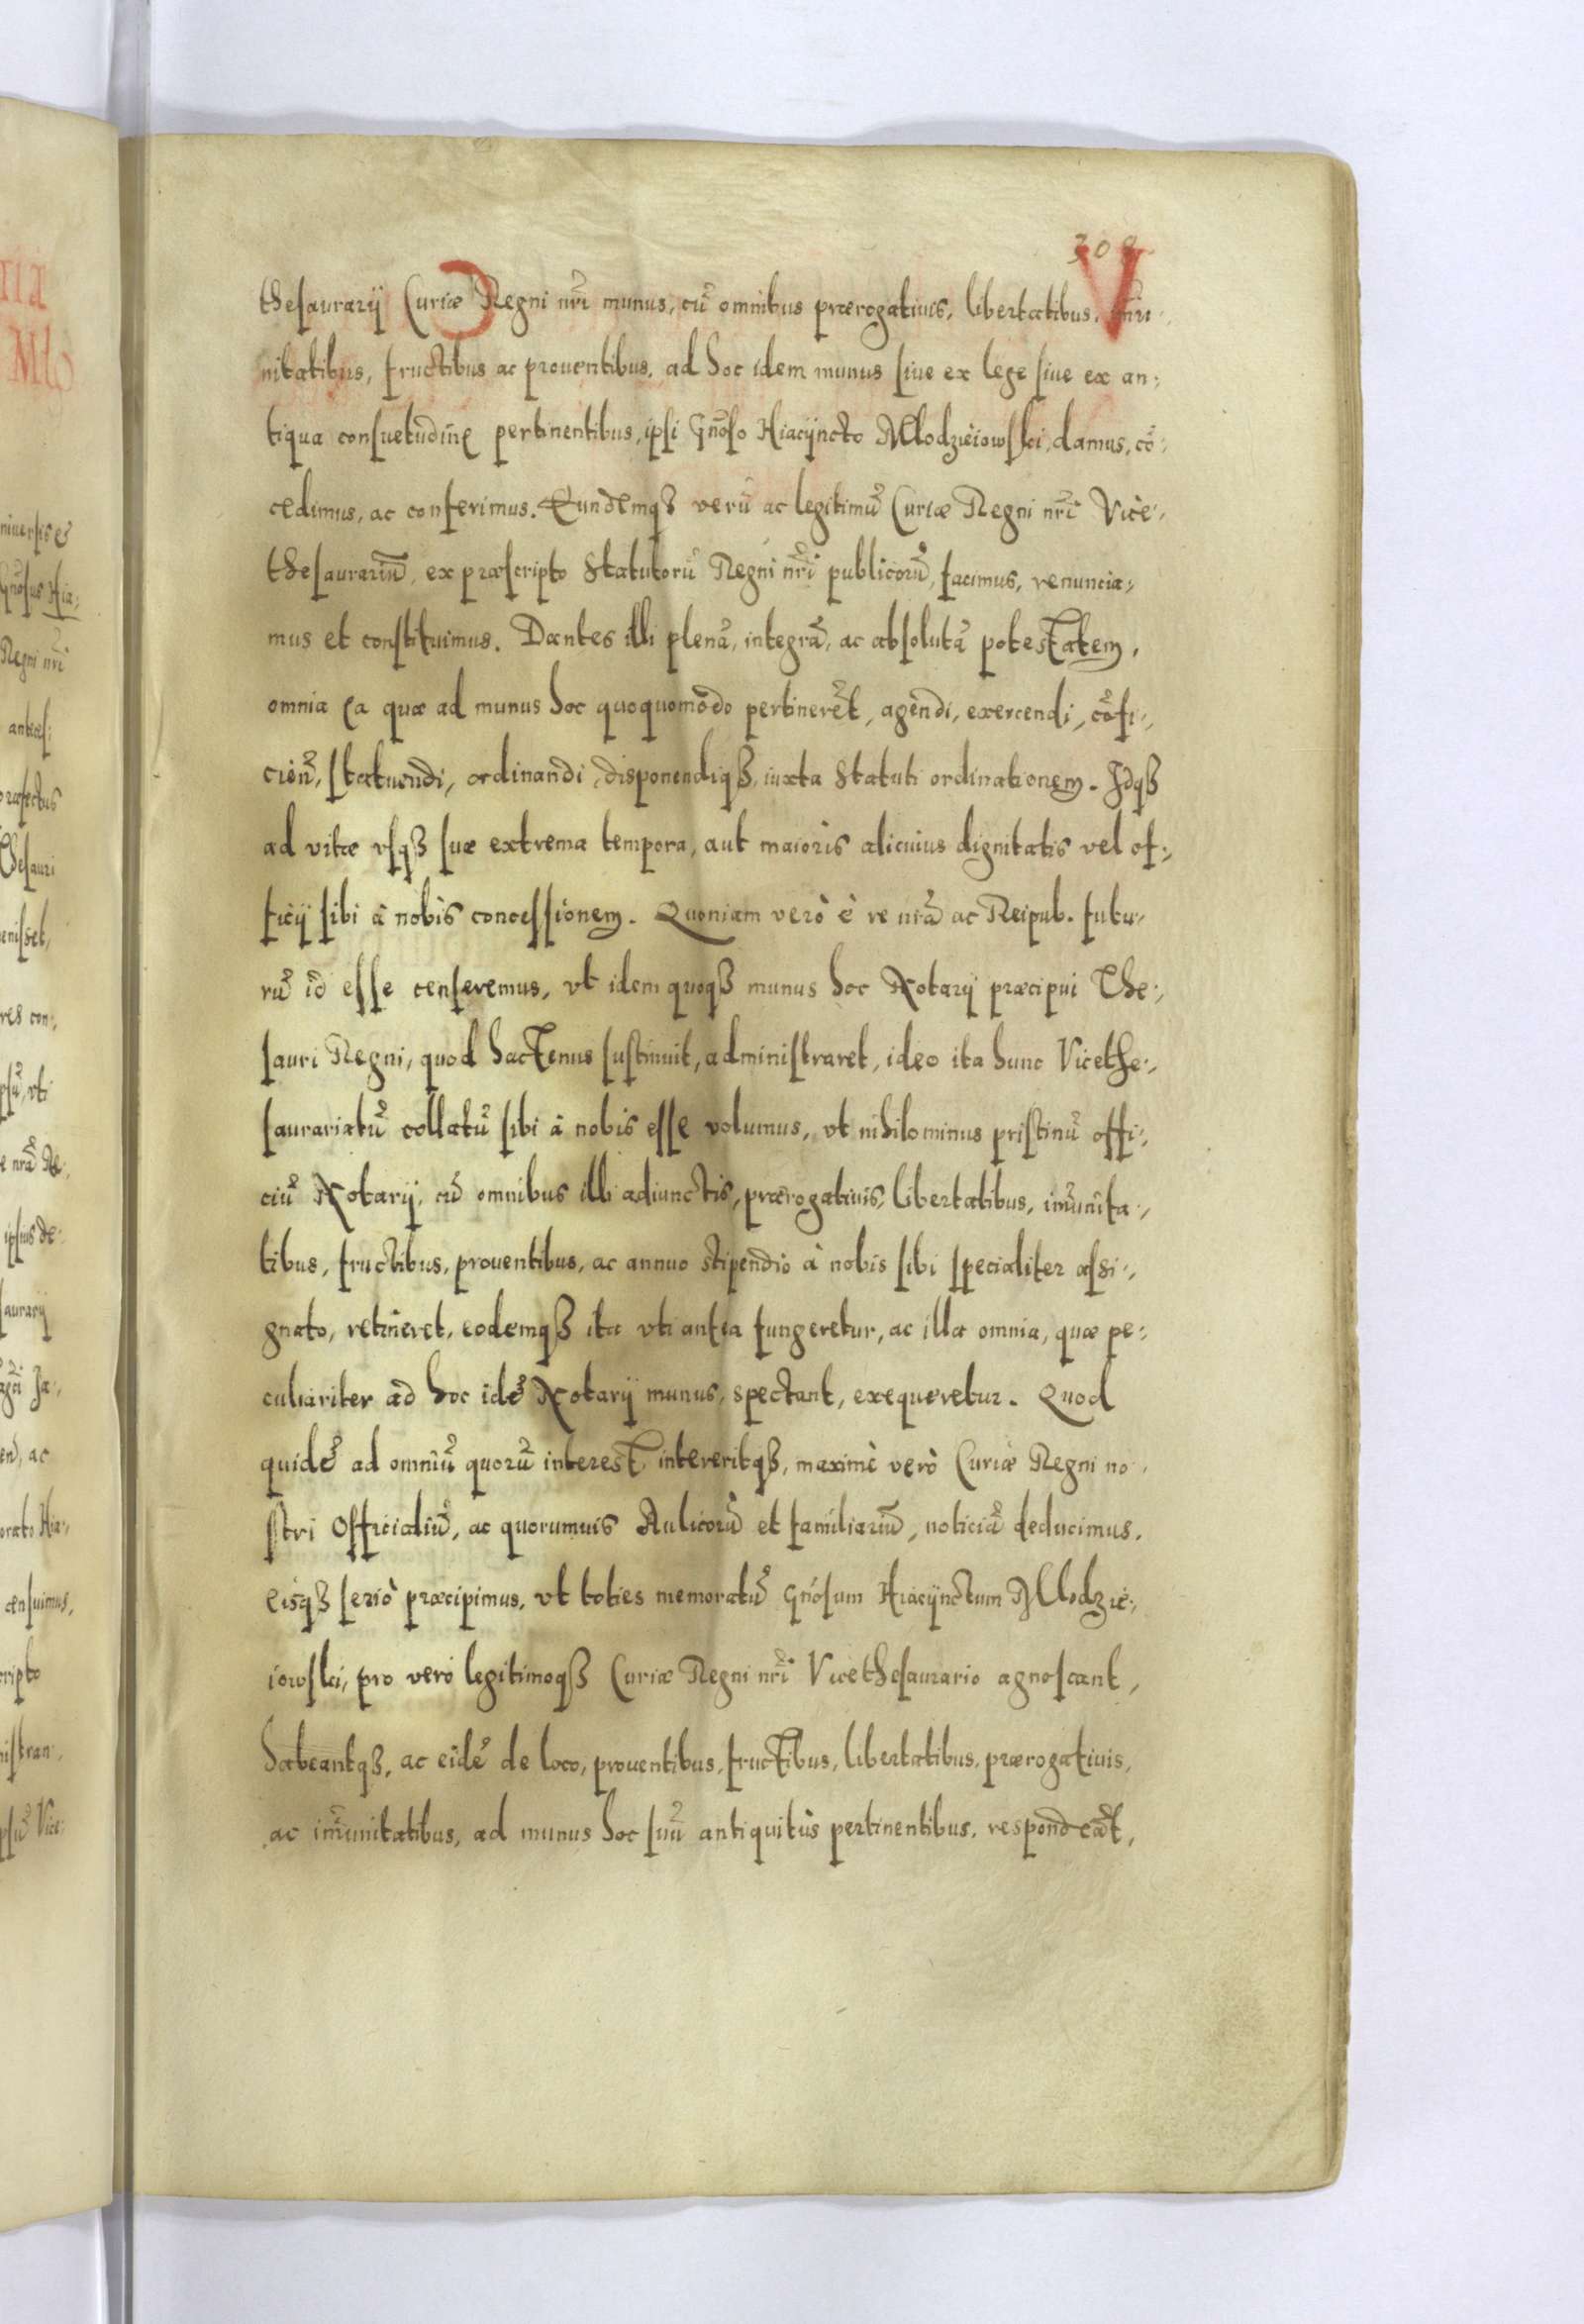 308
thesaurarij Curiæ Regni nrĩ munus, cũ omnibus prærogatiuis, libertatibus, im̃u-
nitatibus, fructibus ac prouentibus, ad hoc idem munus siue ex lege siue ex an-
tiqua consuetudinę pertinentibus, ipsi Gnõso Hiacijncto Mlodzieiowski, damus, cõ-
cedimus, ac conferimus. Eundemqȝ verũ ac legitimũ Curiæ Regni nrĩ Vice-
thesaurariũ, ex præscripto Statutorũ Regni nrĩ publicorũ, facimus, renuncia-
mus et constituimus. Dantes illi plenã, integrã, ac absolutã potestatem,
omnia ea quæ ad munus hoc quoquomodo pertinerẽt, agendi, exercendi, cõfi-
cien̄, statuendi, ordinandi, disponendiqȝ, iuxta Statuti ordinationem. Idqȝ
ad vitæ vsqȝ suæ extrema tempora, aut maioris alicuius dignitatis vel of-
ficij sibi à nobis concessionem. Quoniam verò è re nrã ac Reipub. futu-
rũ id esse censeremus, vt idem quoqȝ munus hoc Notarij præcipui The-
sauri Regni, quod hactenus sustinuit, administraret, ideo ita hunc Vicethe-
saurariatũ collatũ sibi à nobis esse volumus, vt nihilominus pristinũ offi-
ciũ Notarij, cũ omnibus illi adiunctis, prærogatiuis, libertatibus, im̃unita-
tibus, fructibus, prouentibus, ac annuo stipendio à nobis sibi specialiter assi-
gnato, retineret, eodemqȝ ita vti antea fungeretur, ac illa omnia, quæ pe-
culiariter ad hoc idẽ Notarij munus, spectant, exequeretur. Quod
quidẽ ad omniũ quorũ interest, intereritqȝ, maximè verò Curiæ Regni no-
stri Officialiũ, ac quorumuis Aulicorũ et familiariũ, noticiã deducimus.
eisqȝ seriò præcipimus, vt toties memoratũ Gnõsum Hiacijnctum Mlodzie-
iowski, pro vero legitimoqȝ Curiæ Regni nrĩ Vicethesaurario agnoscant,
habeantqȝ, ac eidẽ de loco, prouentibus, fructibus, libertatibus, prærogatiuis,
ac im̃unitatibus, ad munus hoc suũ antiquitùs pertinentibus, respondeãt,